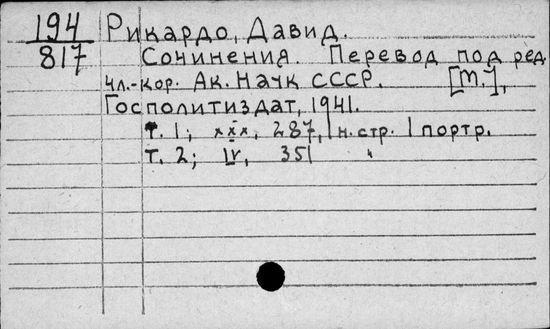 194 Рикардо, Давид.
817 Сочинения. Перевод под ред.
чл.-кор. Ак. Наук СССР. [М.],
Госполитиздат, 1941.
т. 1; xxx, 287, 1 н. стр. 1 портр.
т. 2; IV, 351 "